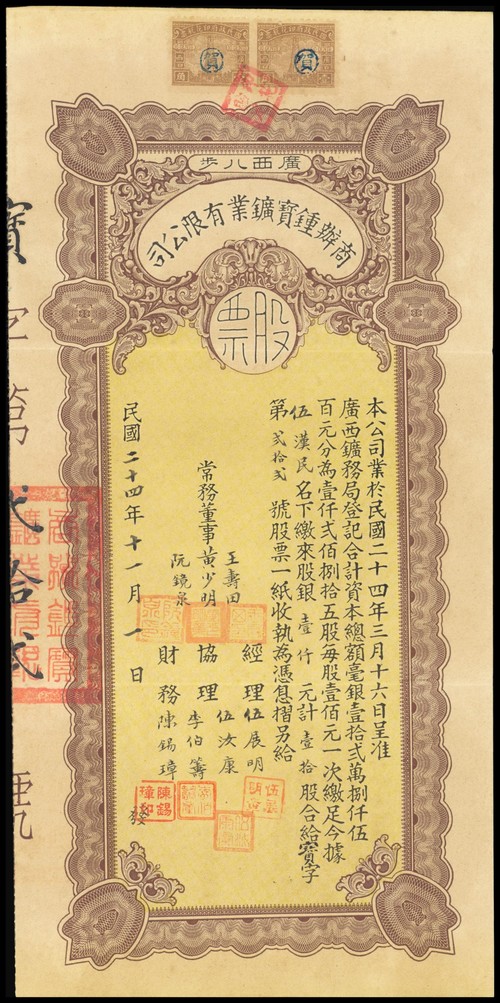 賀
賀
廣西八步
商辦鍾寶鑛業有限公司
股票
本公司業於民國二十四年三月十六日呈准
廣西鑛務局登記合計資本總額毫銀壹拾弍萬捌仟伍
百元分為壹仟弍佰捌拾五股每股壹佰元一次繳足今據
伍漢民名下繳來股銀壹仟元計壹拾股合給寶字
第弍拾弍號股票一紙收執為憑息摺另給
經理伍展明
協理伍汝康
李伯籌
財務陳錫璋
常務董事王壽田
黃少明
阮鏡泉
民國二十四年十一月一日發
陳錫璋印
寶字第弍拾弍號